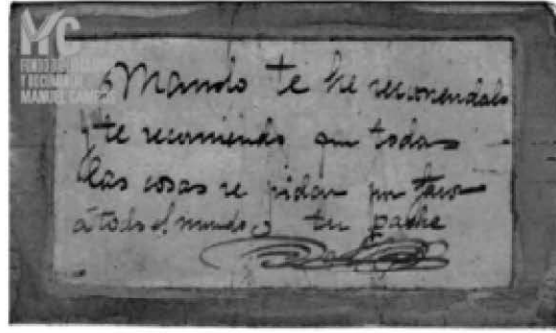 MC
FONDO DE
Y DOCUMENTAL
MANUEL CAMPOS
Manolo te he recomendado
y te recomiendo que todas
las cosas se pidan por favor
á todo el mundo, tu padre